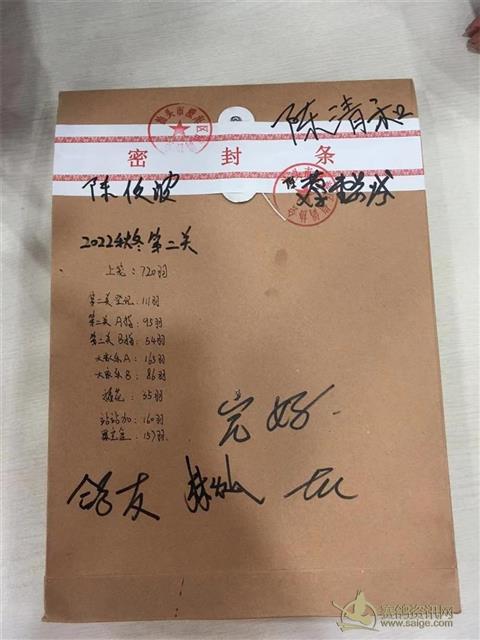 陈清和
密封条
陈俊波
2022秋冬第二关
上笼:720羽
第二关宝冠:111羽
第二关A指:95羽
第二关B指:54羽
大家乐A:165羽
大家乐B:86羽
插花:35羽
站站加:160羽
157羽
完好
鸽友
赛鸽资讯网
www.saige.com